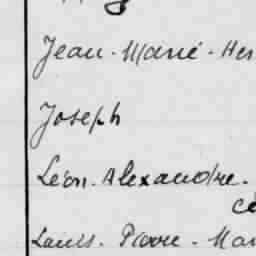 Jean-Marie-Her
Joseph
Léon-Alexandre-
Louis-Pierre-Mar